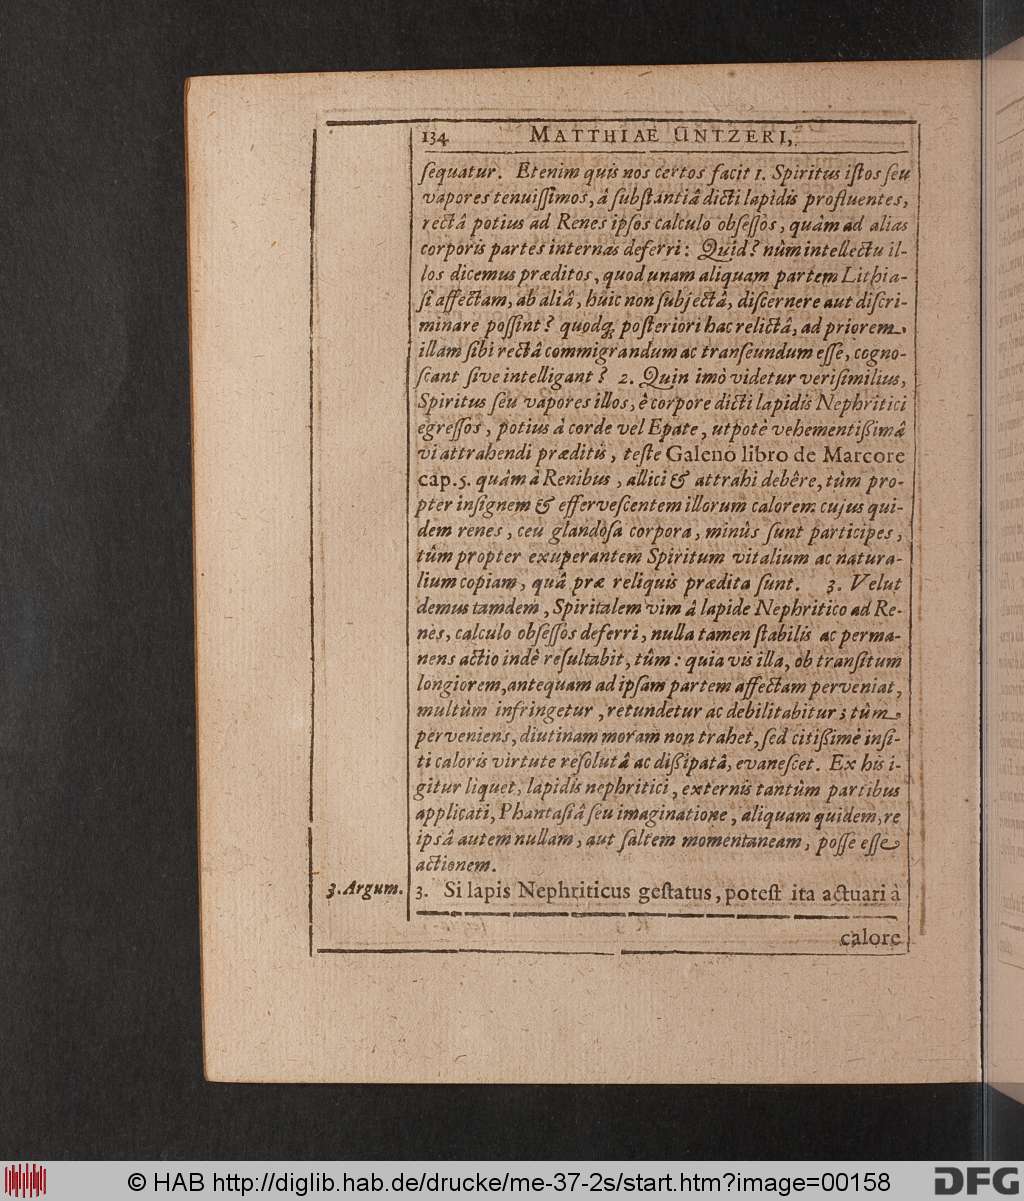 134 MATTHIAE UNTZERI,
ſequatur. Etenim quis nos certos facit 1. Spiritus iſtos ſeu
vapores tenuiſſimos, â ſubſtantiâ dicti lapidis profluentes,
rectâ potius ad Renes ipſos calculo obſeſſos, quàm ad alias
corporis partes internas deferri: Quid? nùm intellectu il-
los dicemus præditos, quod unam aliquam partem Lithia-
ſi affectam, ab aliâ, huic non ſubjectâ, diſcernere aut diſcri-
minare poſſint? quodq; poſteriori hac relictâ, ad priorem
illam ſibi rectâ commigrandum ac tranſeundum eſſe, cogno-
ſcant ſive intelligant? 2. Quin imò videtur veriſimilius,
Spiritus ſeu vapores illos, è corpore dicti lapidis Nephritici
egreſſos, potius à corde vel Epate, utpotè vehementiſſimâ
vi attrahendi præditis, teſte Galeno libro de Marcore
cap. 5. quàm à Renibus, allici & attrahi debêre, tùm pro-
pter inſignem & efferveſcentem illorum calorem cujus qui-
dem renes, ceu glandoſa corpora, minùs ſunt participes,
tùm propter exuperantem Spirituum vitalium ac natura-
lium copiam, quâ præ reliquis prædita ſunt. 3. Velut
demus tamdem, Spiritalem vim â lapide Nephritico ad Re-
nes, calculo obſeſſos deferri, nulla tamen ſtabilis ac perma-
nens actio indè reſultabit, tùm: quia vis illa, ob tranſitum
longiorem, antequam ad ipſam partem affectam perveniat,
multùm infringetur, retundetur ac debilitabitur; tùm
perveniens, diutinam moram non trahet, ſed citiſſimè inſi-
ti caloris virtute reſolutâ ac diſſipatâ, evaneſcet. Ex his i-
gitur liquet, lapidis nephritici, externis tantùm partibus
applicati, Phantaſiâ ſeu imaginatione, aliquam quidem, re
ipsâ autem nullam, aut ſaltem momentaneam, poſſe eſſe
actionem.
3. Argum. 3. Si lapis Nephriticus geſtatus, poteſt ita actuari à
calore
© HAB http://diglib.hab.de/drucke/me-37-2s/start.htm?image=00158
DFG